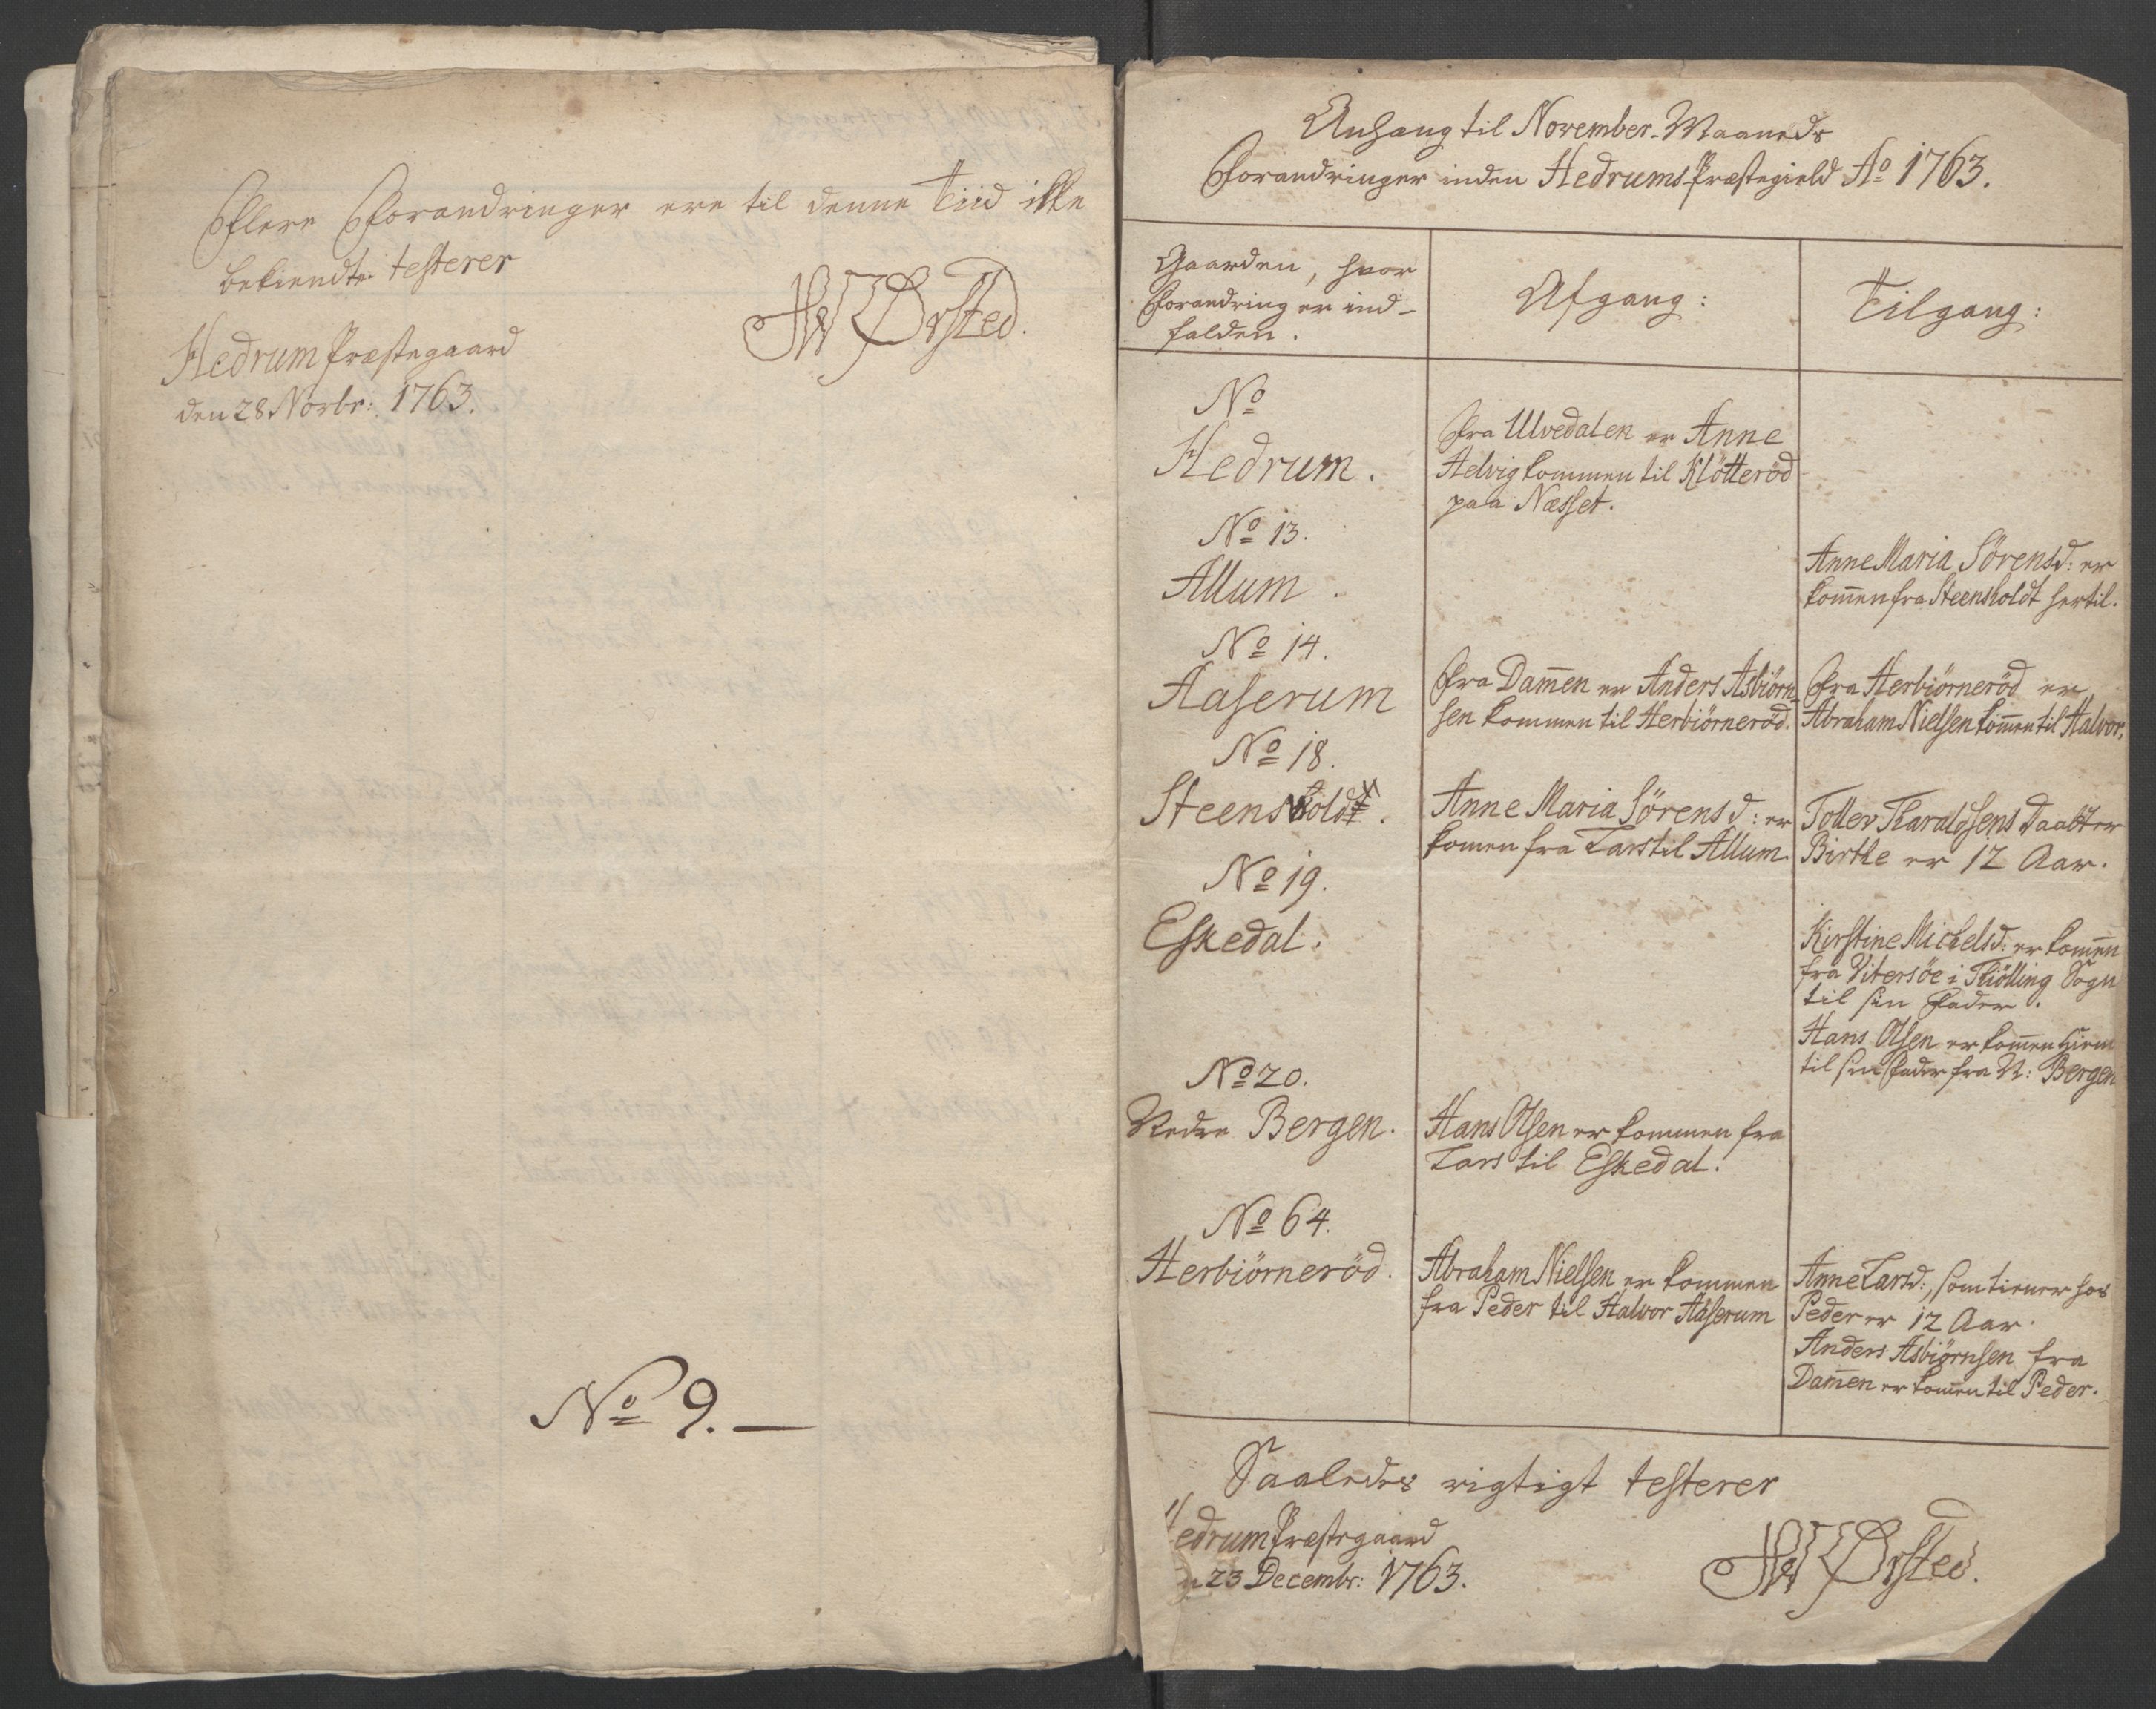 Flere Forandringer ere til denne Tiid ikke
bekiendte testerer
HW Ørsted.
Hedrum Præstegaard
den 28 Novbr: 1763.
No 9.—
Anhang til November-Maaneds
Forandringer inden Hedrums-Præstegield Ao 1763.
Gaarden, hvor
Forandring er ind-
falden.
Afgang:
Tilgang:
No
Hedrum.
Fra Ulvedalen er Anne
Helvig kommen til Klötteröd
paa Næsset.
No 13.
Allum.
Anne Maria Sörensd: er
kom̄en fra Steensholdt hertil.
No 14.
Haaserum
Fra Dam̄en er Anders Asbiörn-
sen kommen til Herbiörneröd.
Fra Herbiörneröd er
Abraham Nielsen kom̄en til Halvor.
No 18.
Steensholdt.
Anne Maria Sörensd: er
komen fra Lars til Allum.
Tollev Haraldsens Daatter
Birthe er 12 Aar.
No 19.
Eskedal.
Kirstine Michelsd: er kom̄en
fra Vitersöe i Tiölling Sogn
til sin Fader.
Hans Olsen er kom̄en hiem
til sin Fader fra N: Bergen
No 20.
Nedre Bergen.
Hans Olsen er kommen fra
Lars til Eskedal.
No 64.
Herbiörneröd.
Abraham Nielsen er kommen
fra Peder til Halvor Haaserum
Anne Larsd:, som tiener hos
Peder er 12 Aar.
Anders Asbiörnsen fra
Dam̄en er kom̄en til Peder.
Saaledes rigtigt testerer
Hedrum Præstegaard
23 Decembr: 1763.
HW Ørsted.